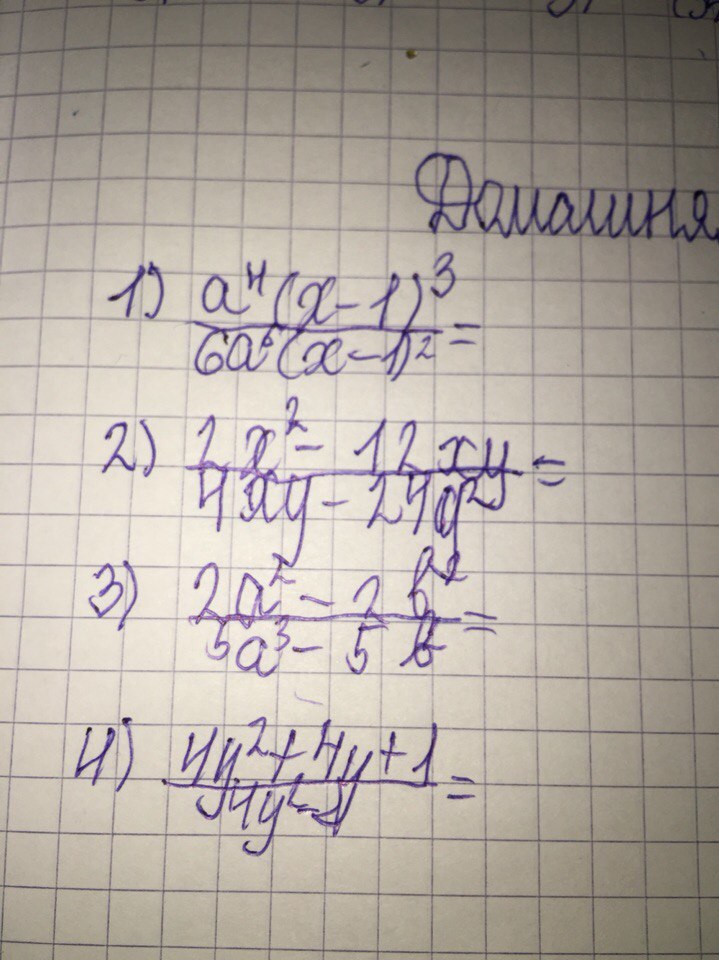 Домашня
1) a⁴(x-1)³ / 6a⁶(x-1)² =
2) 2x² - 12xy / 4xy - 24y² =
3) 2a² - 2b² / 5a³ - 5b =
4) 4y² + 4y + 1 / 4y² - 1 =